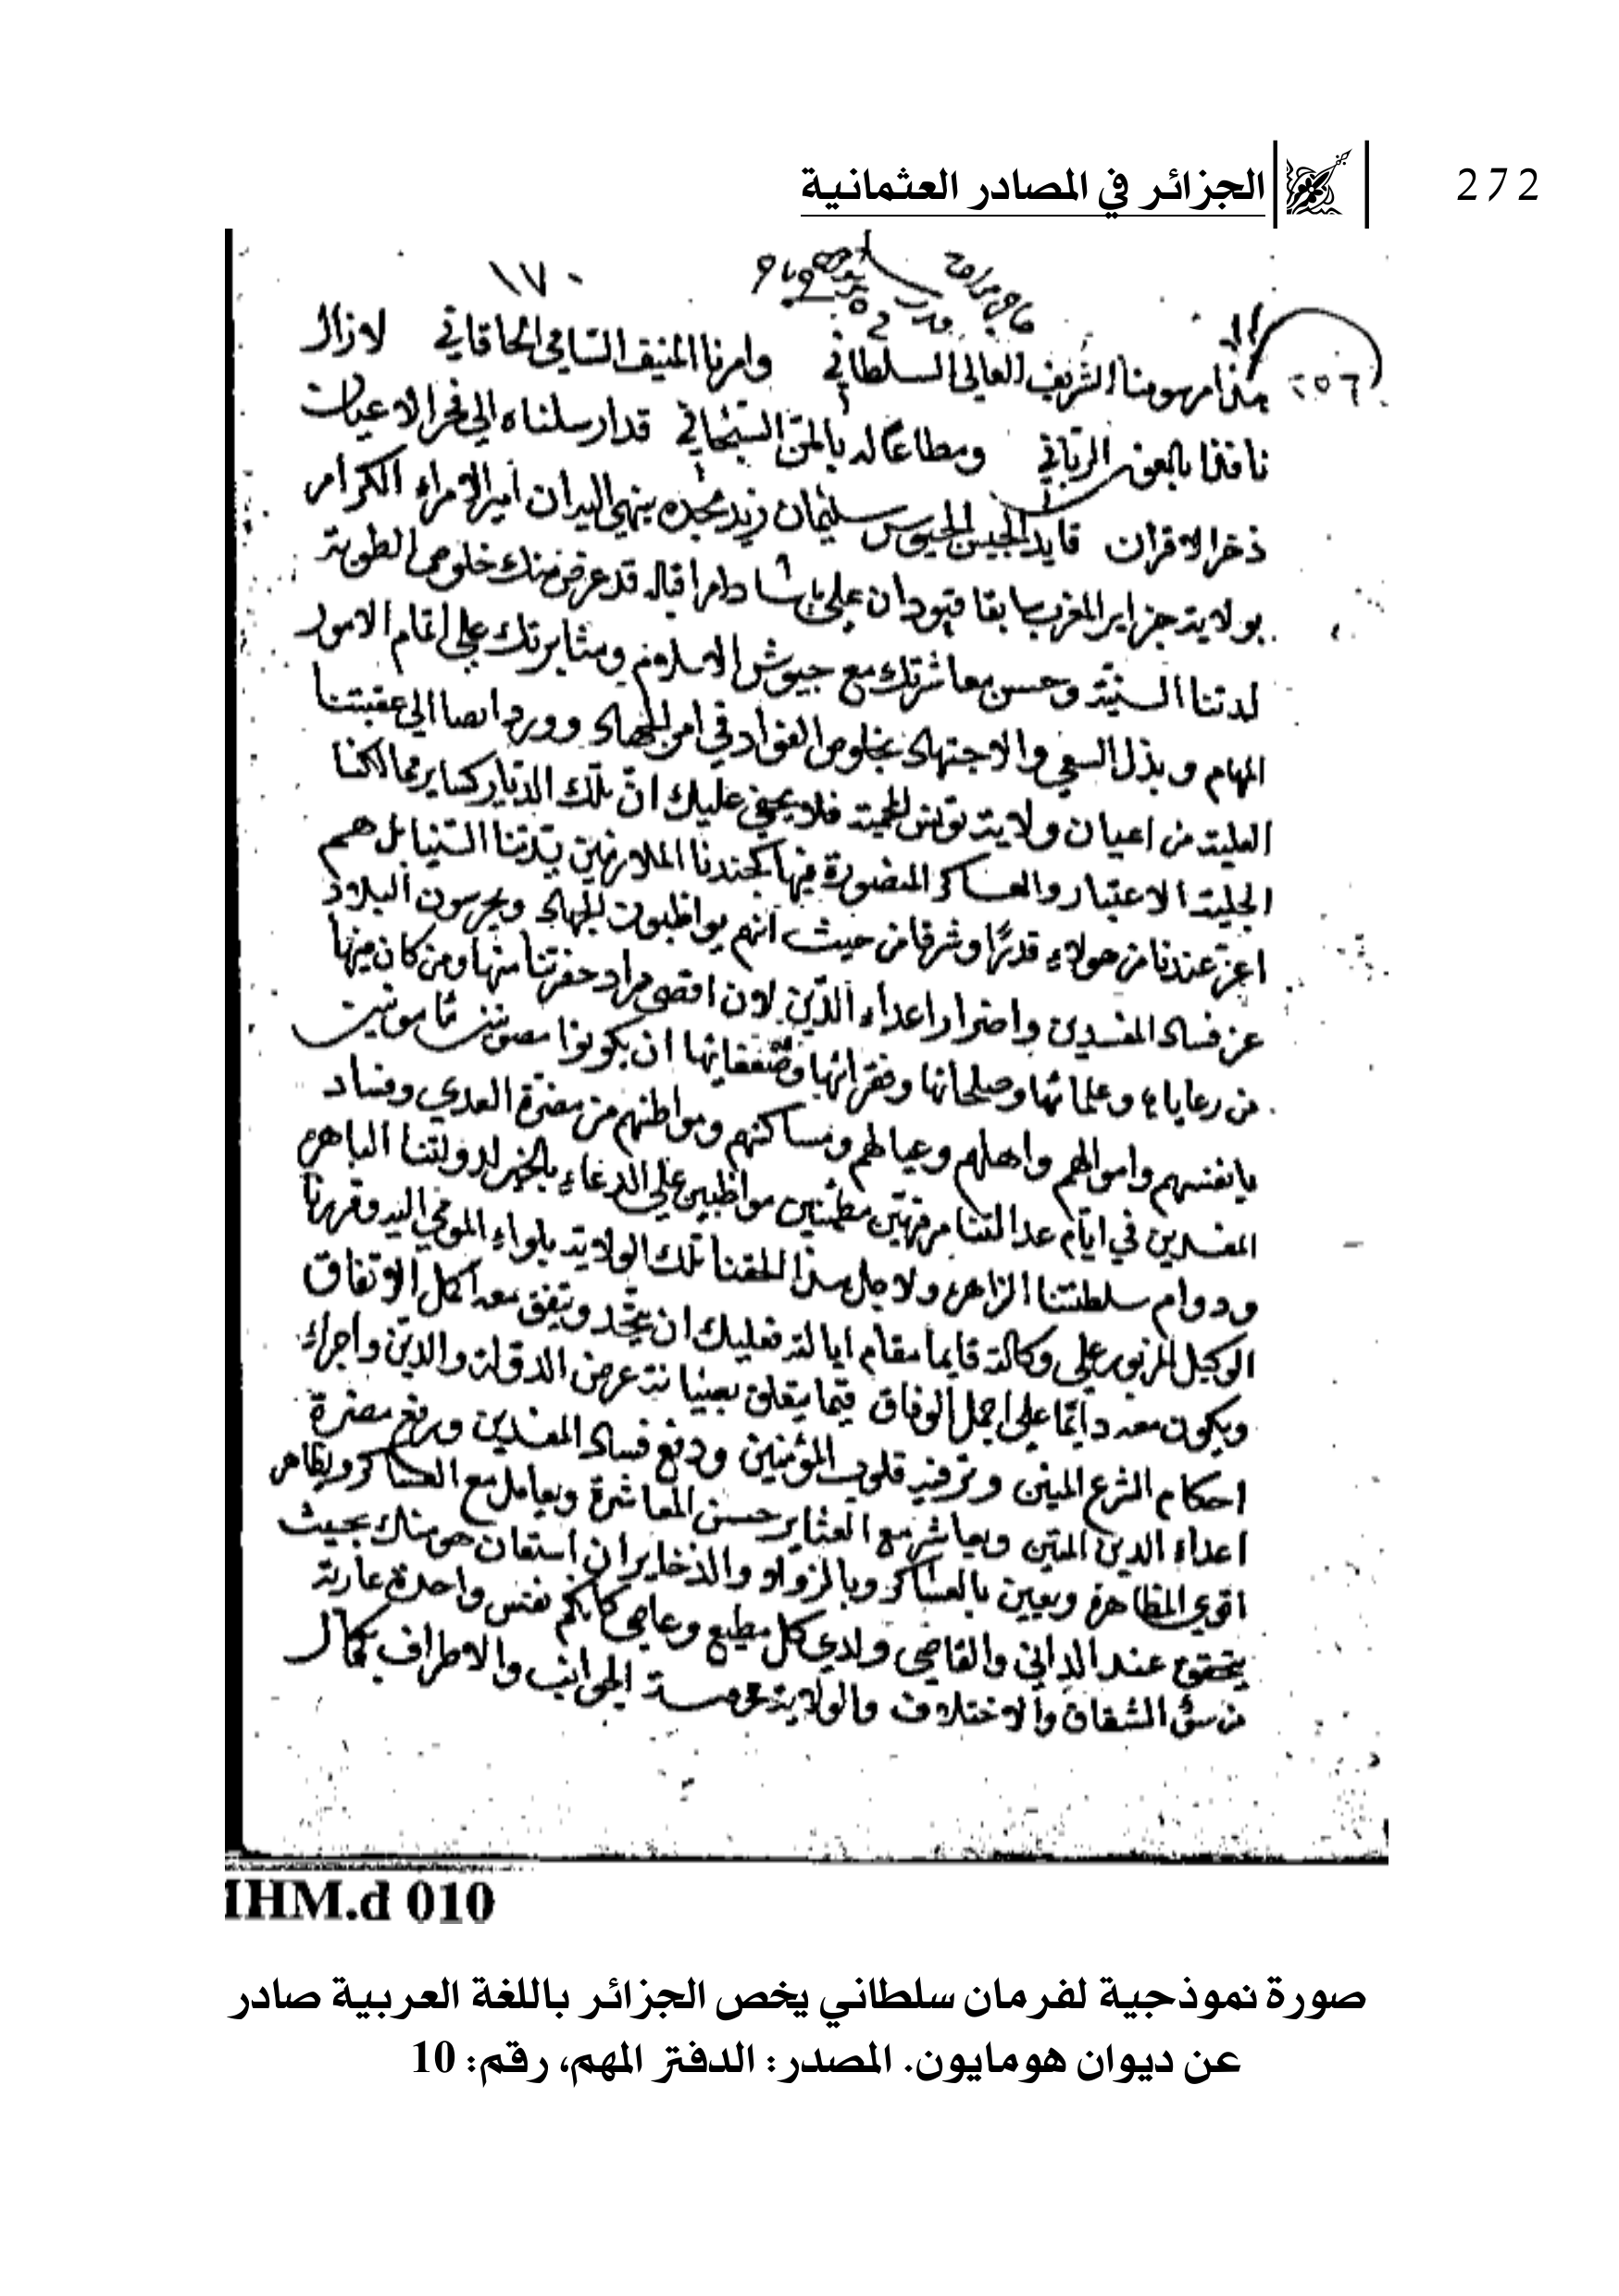 272
الجزائر في المصادر العثمانية
١٧٠
٢٥٦
هذا مرسومنا الشريف العالي السلطاني وامرنا المنيف السامي الخاقاني لا زال
نافذا بالعون الرباني ومطاعا له بالمن السبحاني قد ارسلناه الي فخر الاعيان
ذخر الاقران قايد الجيس الجيوس سليمان زيد مجده ينهي اليه ان امير الامراء الكرام
بولاية جزاير المغرب سابقا قپودان علي پاشا دام اقباله قد عرض منك خلوص الطوية
لدتنا السنية وحسن معاشرتك مع جيوش الاسلام ومثابرتك علي اتمام الامور
المهام وبذل السعي والاجتهاد بخلوص الفؤاد في امر الجهاد وورد ايضا الي عتبتنا
العلية من اعيان ولاية تونس المحمية فلا يخفي عليك ان تلك الديار كساير ممالكنا
الجلية الاعتبار والعساكر المنصورة فيها كجندنا الملازمين بسدتنا السنيا بل هم
اعز عندنا من هولاء قدرًا وشرفا من حيث انهم يواظبون للجهاد ويحرسون البلاد
عن فساد المفسدين واضرار اعداء الدين لان اقصي مراد حضرتنا منها ومن كان فيها
من رعاياها وعلمائها وصلحائها وفقرائها وضعفائها ان يكونوا مصونين مامونين
بانفسهم واموالهم واهلهم وعيالهم ومساكنهم ومواطنهم من مضرة العدي وفساد
المفسدين في ايام عدالتنا مرفهين مطمئنين مواظبين علي الدعاء بالخير لدولتنا الباهره
ودوام سلطنتنا الزاهره ولاجل هذا الحقنا تلك الولاية بلواء المومي اليه وقررنا
الوكيل المزبور علي وكالته قايما مقام ايالته فعليك ان يتحد ويتفق معه اكمل الاتفاق
ويكون معه دائما علي اجمل الوفاق فيما يتعلق بصيانة عرض الدولة والدين واجراء
احكام الشرع المبين وترفيه قلوب المؤمنين ودفع فساد المفسدين ورفع مضرة
اعداء الدين المتين ويعاشر مع العشاير حسن المعاشرة ويعامل مع العساكر ويظاهر
اقوي المظاهرة ويعين بالعساكر وبالزواد والذخاير ان استعان هو منك بحيث
يتحقق عند الداني والقاصي ولدي كل مطيع وعاصي كانكم نفس واحدة عارية
من سؤ الشقاق والاختلاف والولاية محروسة الجوانب والاطراف بكمال
MHM.d 010
صورة نموذجية لفرمان سلطاني يخص الجزائر باللغة العربية صادر
عن ديوان هومايون. المصدر: الدفتر المهم، رقم: 10